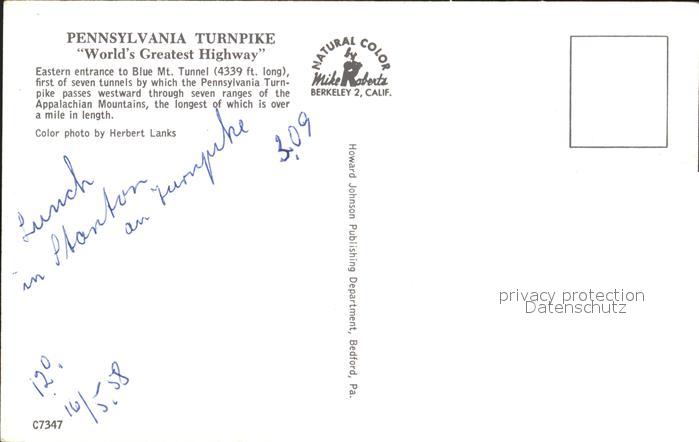 PENNSYLVANIA TURNPIKE
"World's Greatest Highway"
Eastern entrance to Blue Mt. Tunnel (4339 ft. long),
first of seven tunnels by which the Pennsylvania Turn-
pike passes westward through seven ranges of the
Appalachian Mountains, the longest of which is over
a mile in length.
Color photo by Herbert Lanks
NATURAL COLOR
by
Mike Roberts
BERKELEY 2, CALIF.
Lunch 3.09
in Stanton
on turnpike
12º.
16/5.58
C7347
Howard Johnson Publishing Department, Bedford, Pa.
privacy protection
Datenschutz